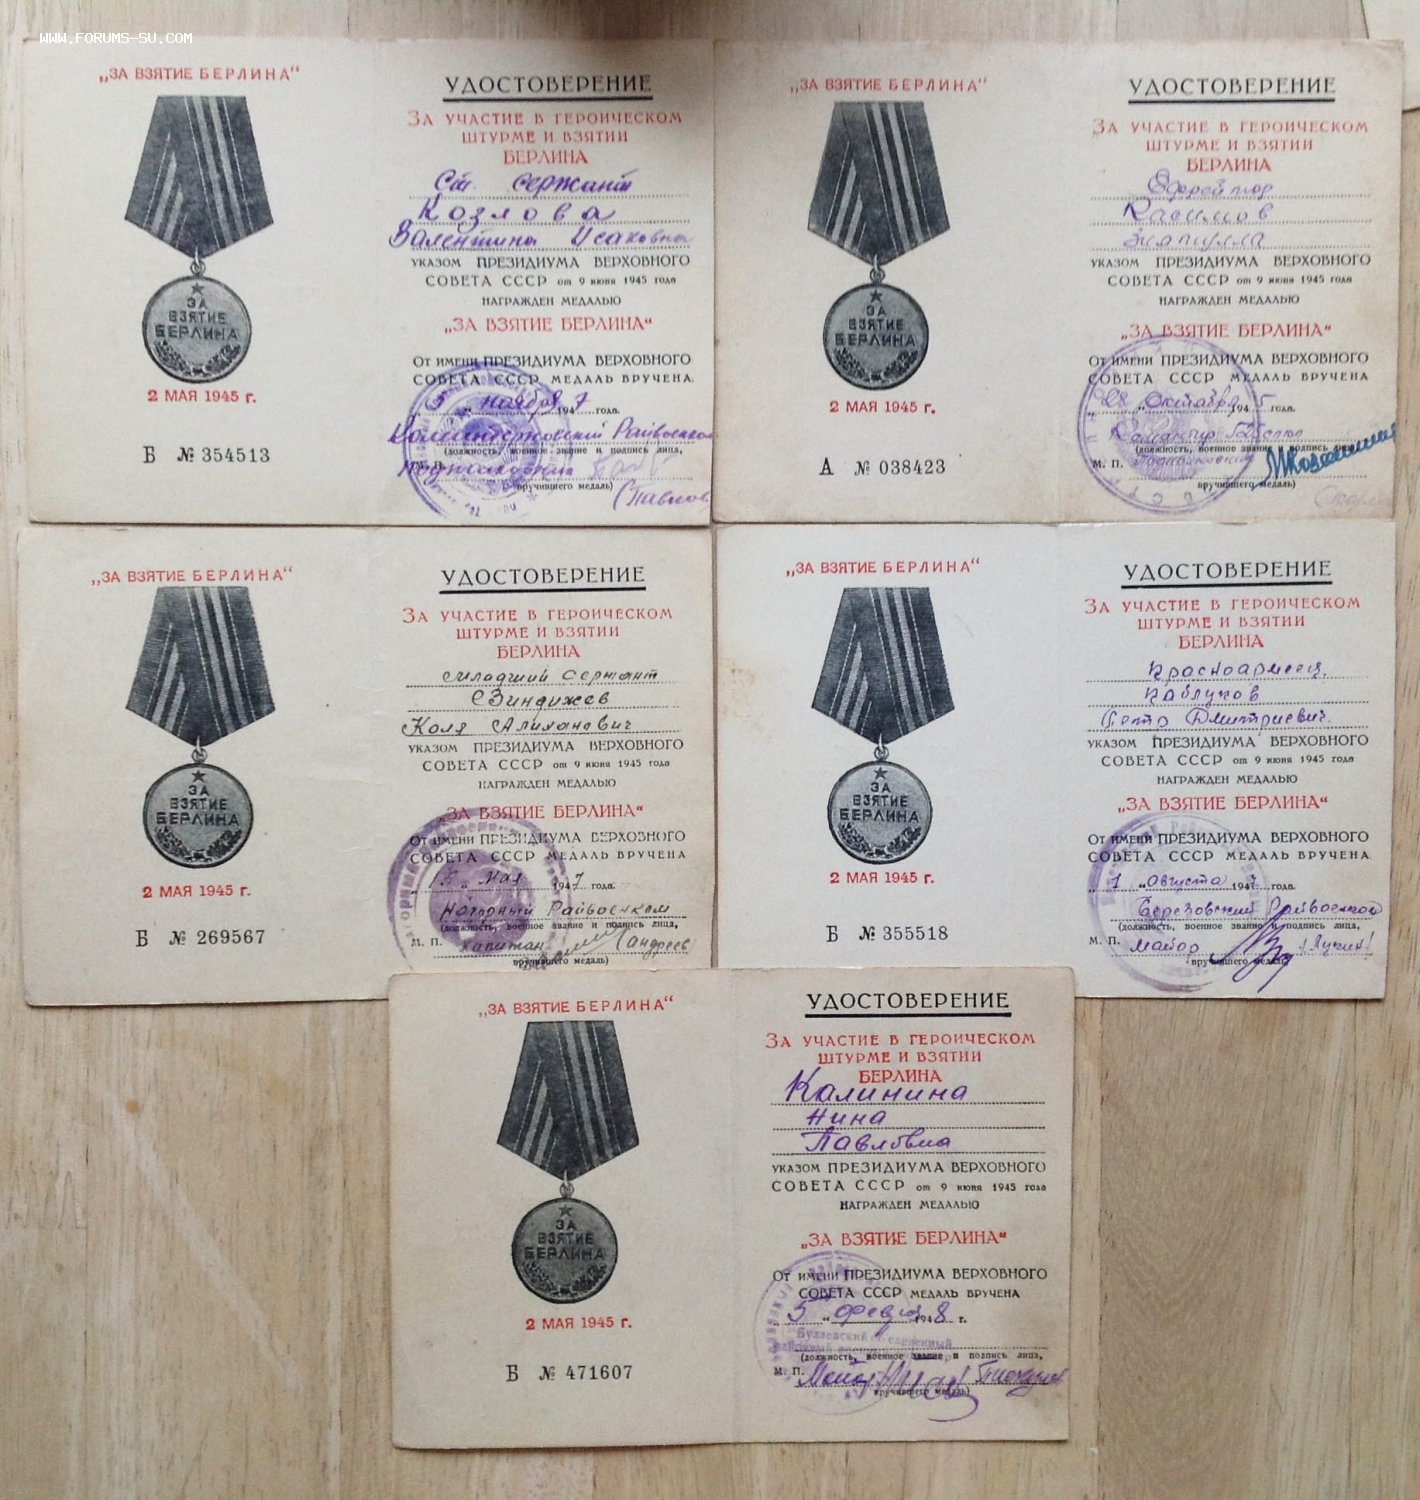 WWW.FORUMS-SU.COM
„ЗА ВЗЯТИЕ БЕРЛИНА“
ЗА
ВЗЯТИЕ
БЕРЛИНА
2 МАЯ 1945 г.
Б № 354513
УДОСТОВЕРЕНИЕ
ЗА УЧАСТИЕ В ГЕРОИЧЕСКОМ
ШТУРМЕ И ВЗЯТИИ
БЕРЛИНА
Ст. сержант
Козлова
Валентина Исаковна
УКАЗОМ ПРЕЗИДИУМА ВЕРХОВНОГО
СОВЕТА СССР от 9 июня 1945 года
НАГРАЖДЕН МЕДАЛЬЮ
„ЗА ВЗЯТИЕ БЕРЛИНА“
От имени ПРЕЗИДИУМА ВЕРХОВНОГО
СОВЕТА СССР МЕДАЛЬ ВРУЧЕНА
„5„ ноября 1947 года.
Коминтерновский Райвоенком
(должность, военное звание и подпись лица,
Подполковник
вручившего медаль)
(Павлов
„ЗА ВЗЯТИЕ БЕРЛИНА“
ЗА
ВЗЯТИЕ
БЕРЛИНА
2 МАЯ 1945 г.
А № 038423
УДОСТОВЕРЕНИЕ
ЗА УЧАСТИЕ В ГЕРОИЧЕСКОМ
ШТУРМЕ И ВЗЯТИИ
БЕРЛИНА
Ефрейтор
УКАЗОМ ПРЕЗИДИУМА ВЕРХОВНОГО
СОВЕТА СССР от 9 июня 1945 года
НАГРАЖДЕН МЕДАЛЬЮ
„ЗА ВЗЯТИЕ БЕРЛИНА“
От имени ПРЕЗИДИУМА ВЕРХОВНОГО
СОВЕТА СССР МЕДАЛЬ ВРУЧЕНА
„28„ Октября 1945 года.
Командир
(должность, военное звание и подпись лица,
М. П. Подполковник
вручившего медаль)
„ЗА ВЗЯТИЕ БЕРЛИНА“
ЗА
ВЗЯТИЕ
БЕРЛИНА
2 МАЯ 1945 г.
Б № 269567
УДОСТОВЕРЕНИЕ
ЗА УЧАСТИЕ В ГЕРОИЧЕСКОМ
ШТУРМЕ И ВЗЯТИИ
БЕРЛИНА
младший сержант
Зиндижев
Коля Алиханович
УКАЗОМ ПРЕЗИДИУМА ВЕРХОВНОГО
СОВЕТА СССР от 9 июня 1945 года
НАГРАЖДЕН МЕДАЛЬЮ
„ЗА ВЗЯТИЕ БЕРЛИНА“
От имени ПРЕЗИДИУМА ВЕРХОВНОГО
СОВЕТА СССР МЕДАЛЬ ВРУЧЕНА
„15„ мая 1947 года.
Нагорный Райвоенком
(должность, военное звание и подпись лица,
М. П. капитан (Андреев)
вручившего медаль)
„ЗА ВЗЯТИЕ БЕРЛИНА“
ЗА
ВЗЯТИЕ
БЕРЛИНА
2 МАЯ 1945 г.
Б № 355518
УДОСТОВЕРЕНИЕ
ЗА УЧАСТИЕ В ГЕРОИЧЕСКОМ
ШТУРМЕ И ВЗЯТИИ
БЕРЛИНА
Красноармеец
Каблуков
Петр Дмитриевич
УКАЗОМ ПРЕЗИДИУМА ВЕРХОВНОГО
СОВЕТА СССР от 9 июня 1945 года
НАГРАЖДЕН МЕДАЛЬЮ
„ЗА ВЗЯТИЕ БЕРЛИНА“
От имени ПРЕЗИДИУМА ВЕРХОВНОГО
СОВЕТА СССР МЕДАЛЬ ВРУЧЕНА
„1„ августа 1947 года.
Березовский Райвоенком
(должность, военное звание и подпись лица,
М. П. майор (Лукин)
вручившего медаль)
„ЗА ВЗЯТИЕ БЕРЛИНА“
ЗА
ВЗЯТИЕ
БЕРЛИНА
2 МАЯ 1945 г.
Б № 471607
УДОСТОВЕРЕНИЕ
ЗА УЧАСТИЕ В ГЕРОИЧЕСКОМ
ШТУРМЕ И ВЗЯТИИ
БЕРЛИНА
Калинина
Нина
Павловна
УКАЗОМ ПРЕЗИДИУМА ВЕРХОВНОГО
СОВЕТА СССР от 9 июня 1945 года
НАГРАЖДЕН МЕДАЛЬЮ
„ЗА ВЗЯТИЕ БЕРЛИНА“
От имени ПРЕЗИДИУМА ВЕРХОВНОГО
СОВЕТА СССР МЕДАЛЬ ВРУЧЕНА
„5„ февр 1948 г.
(должность, военное звание и подпись лица,
М. П. Майор
вручившего медаль)